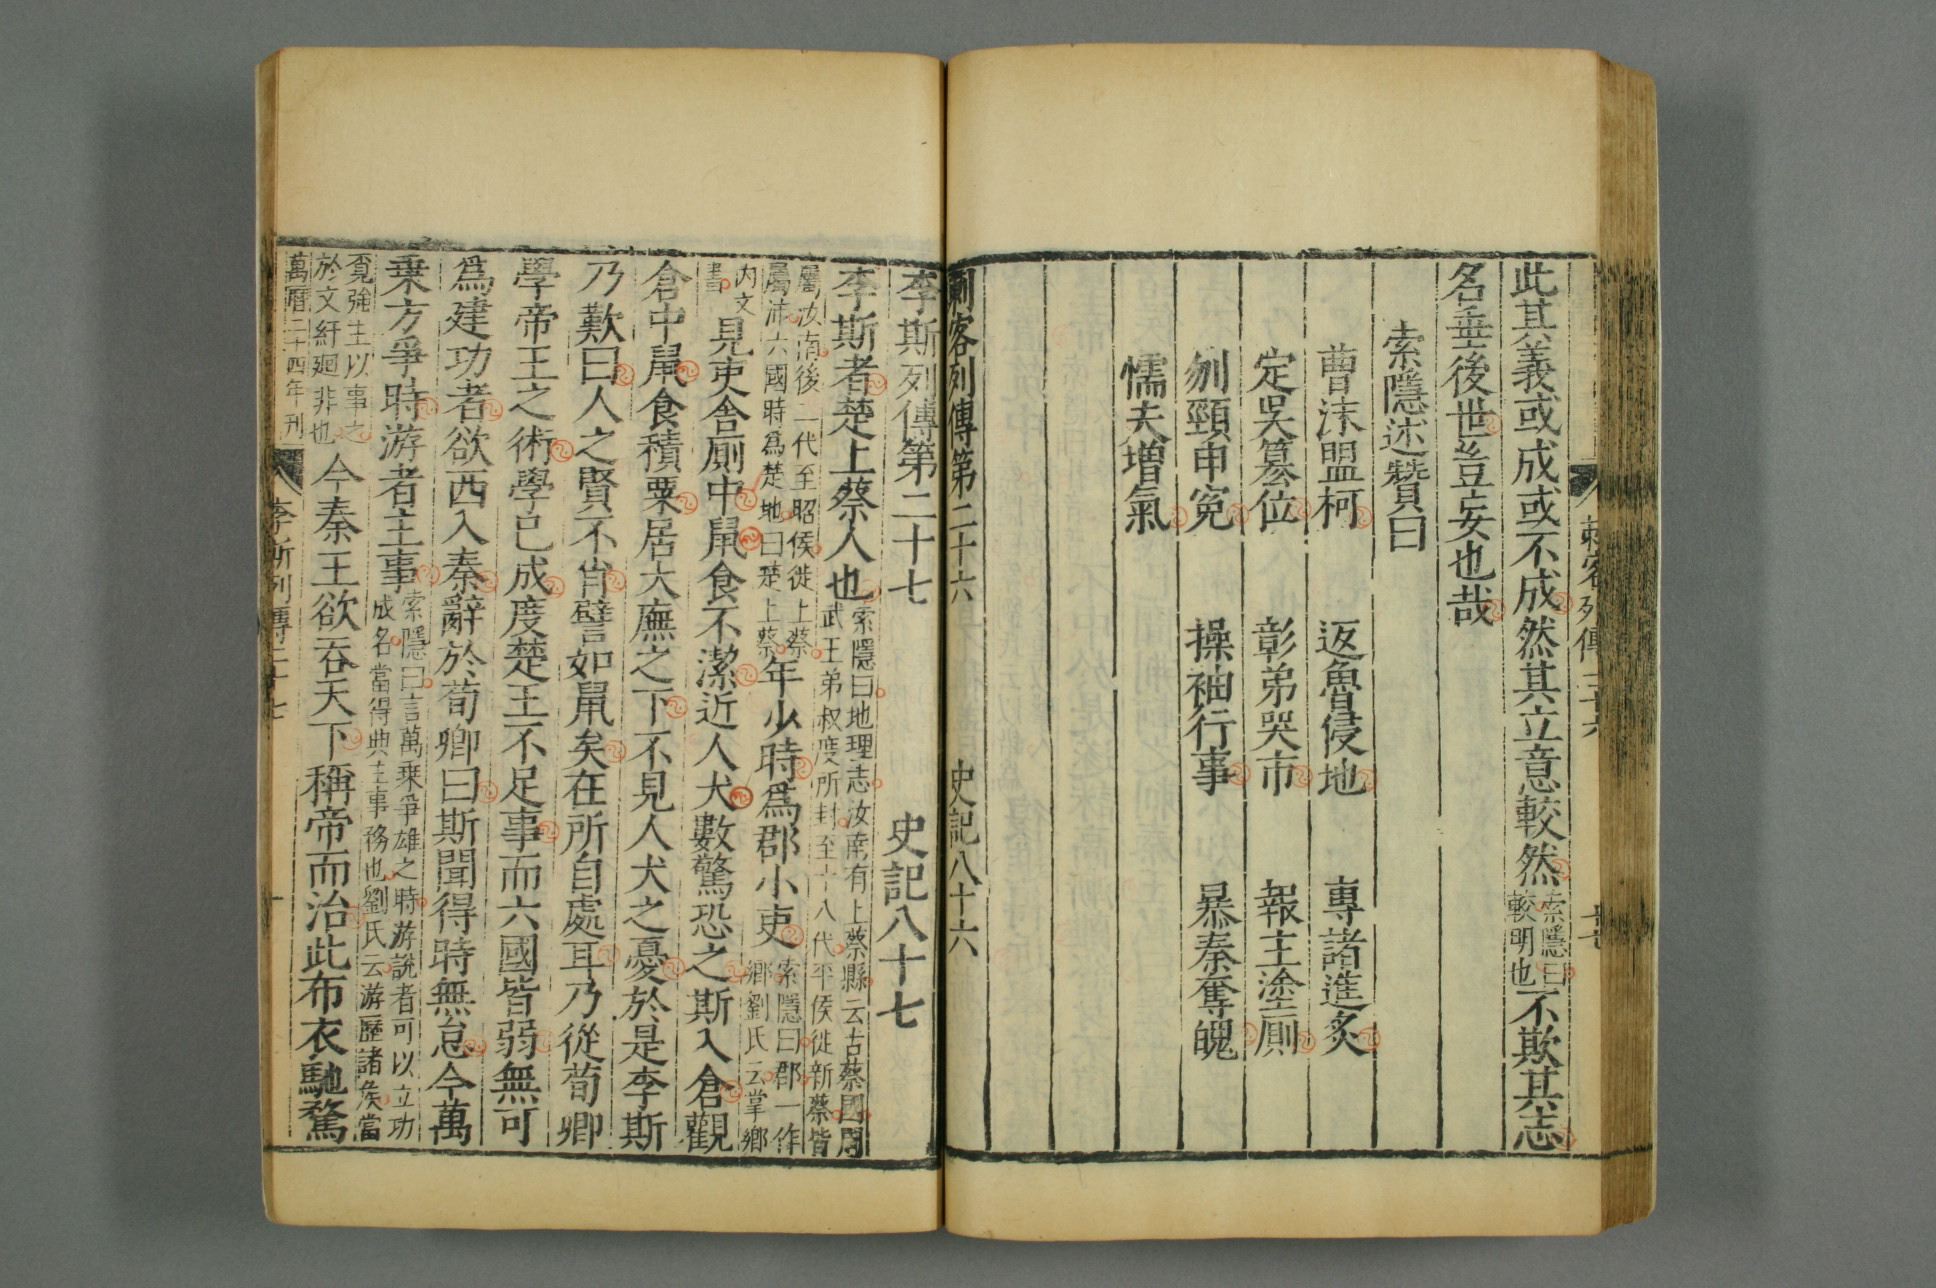 此其義或成或不成然其立意較然索隱曰較明也不欺其志
名垂後世豈妄也哉
索隱述贊曰
曹沬盟柯 返魯侵地 專諸進炙
定吳篡位 彰弟哭市 報主塗厠
刎頸申冤 操袖行事 暴秦奪魄
懦夫增氣
刺客列傳第二十六 史記八十六
李斯列傳第二十七 史記八十七
李斯者楚上蔡人也索隱曰地理志汝南有上蔡縣云古蔡國周武王弟叔度所封至十八代平侯徙新蔡皆
屬汝南後二代至昭侯徙上蔡屬沛六國時爲楚地曰楚上蔡年少時爲郡小吏索隱曰郡一作鄉劉氏云掌鄉
内文書見吏舍廁中鼠食不潔近人犬數驚恐之斯入倉觀
倉中鼠食積粟居大廡之下不見人犬之憂於是李斯
乃歎曰人之賢不肖譬如鼠矣在所自處耳乃從荀卿
學帝王之術學已成度楚王不足事而六國皆弱無可
爲建功者欲西入秦辭於荀卿曰斯聞得時無怠今萬
乗方爭時游者主事索隱曰言萬乗爭雄之時游說者可以立功成名當得典主事務也劉氏云游歷諸侯當
覔強主以事之於文紆廻非也今秦王欲吞天下稱帝而治此布衣馳騖
萬曆二十四年刊 李斯列傳二十七 一